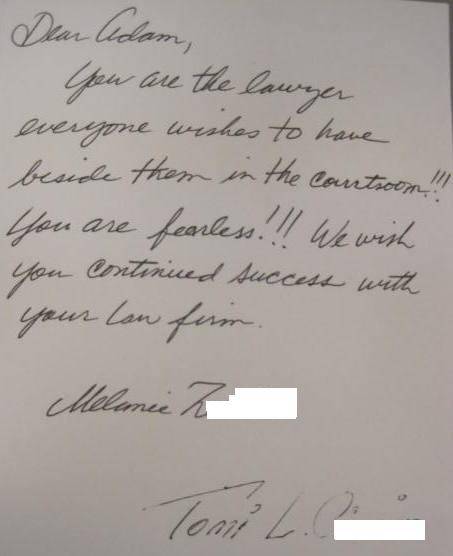 Dear Adam,
You are the lawyer
everyone wishes to have
beside them in the courtroom!!!
You are fearless!!! We wish
you continued success with
your law firm.
Melanie
Toni L.